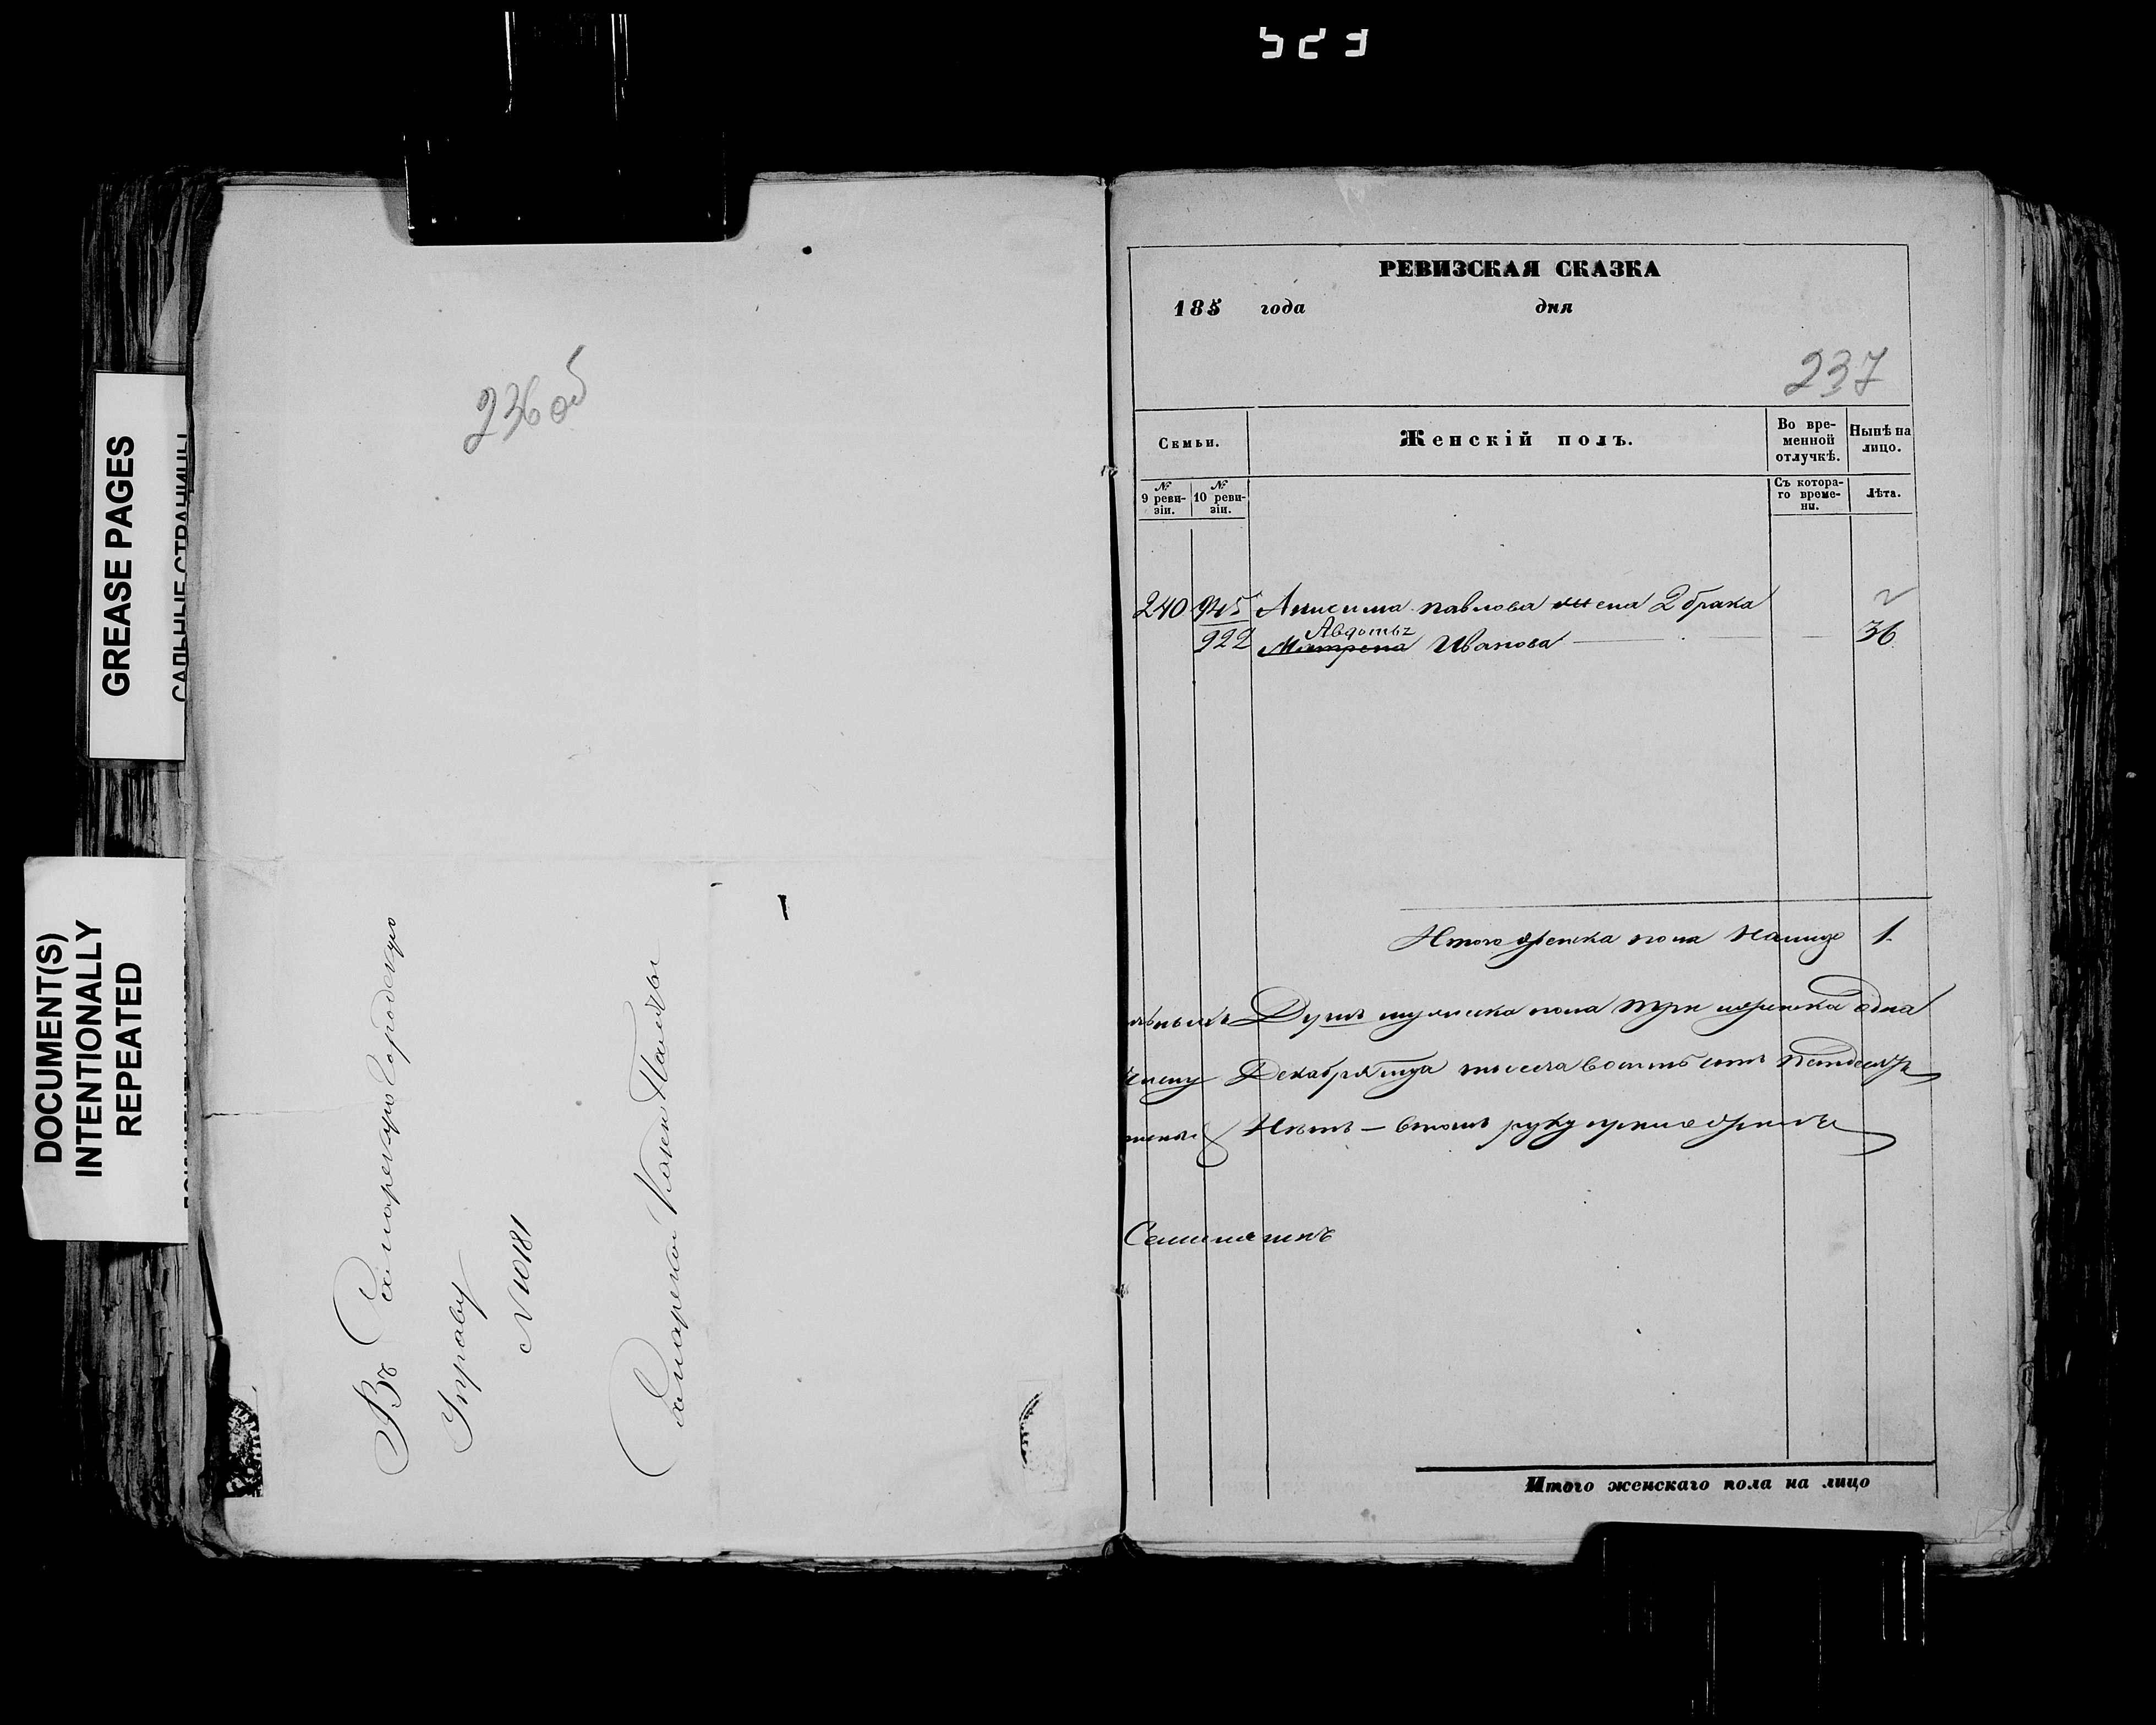 523
GREASE PAGES
САЛЬНЫЕ СТРАНИЦЫ
DOCUMENT(S)
INTENTIONALLY
REPEATED
236 об
Въ Самарскую Городскую
Управу
N 10181
Самарской Казен Палаты
РЕВИЗСКАЯ СКАЗКА
185 года дня
237
Семьи.
Женскій полъ.
Во вре-
менной
отлучкѣ.
Нынѣ на
лицо.
№
9 реви-
зіи.
№
10 реви-
зіи.
Съ котора-
го време-
ни.
Лѣта.
240 945 Анисима Павлова жена 2 брака
922 Авдотья
Матрена Иванова 36
Итого женска пола налицо 1.
Душъ мужеска пола три женска одна
Декабря тысяча восемь сотъ
Нѣтъ — втомъ руку приложилъ
Итого женскаго пола на лицо